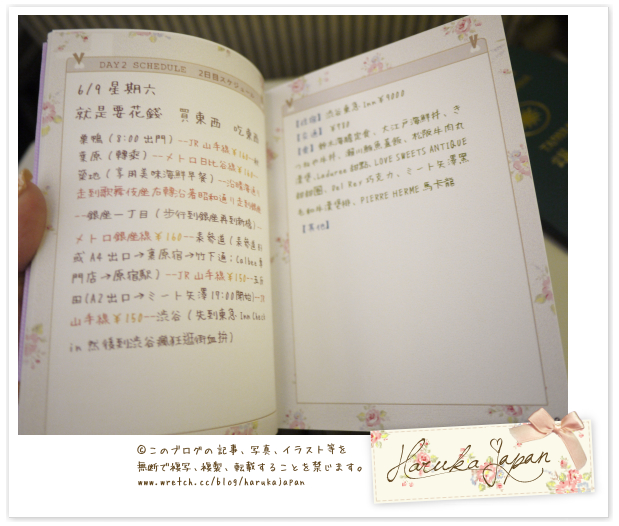 DAY2 SCHEDULE 2日目スケジュール
6/9 星期六
就是要花錢 買東西 吃東西
巢鴨 (8:00 出門) --JR 山手線 ¥160--秋
葉原 (轉乘) --メトロ日比谷線 ¥160--
築地 (享用美味海鮮早餐) --沿晴海通り
走到歌舞伎座右轉沿著昭和通り走到銀座
--銀座一丁目 (步行到銀座再到新橋) --
メトロ銀座線 ¥160--表參道 (表參道
A4 出口→裏原宿→竹下通:Calbee 專
門店→原宿駅) --JR 山手線 ¥150--五反
田(A2 出口→ミート矢澤 17:00開始)--JR
山手線 ¥150--澀谷 (先到東急 Inn Check
in 然後到澀谷瘋狂逛街血拚)
【住宿】澀谷東急 Inn ¥9000
【交通】¥930
【食】鮮水海膽定食、大江戶海鮮丼、き
つねや牛丼、瀨川鮪魚蓋飯、札幌牛肉丸
漢堡、Laduree 甜點、LOVE SWEETS ANTIQUE
甜甜圈、Del Rey 巧克力、ミート矢澤黑
毛和牛漢堡排、PIERRE HERME 馬卡龍
【其他】
©このブログの記事、写真、イラスト等を
無断で複写、複製、転載することを禁じます。
www.wretch.cc/blog/harukajapan
Haruka Japan